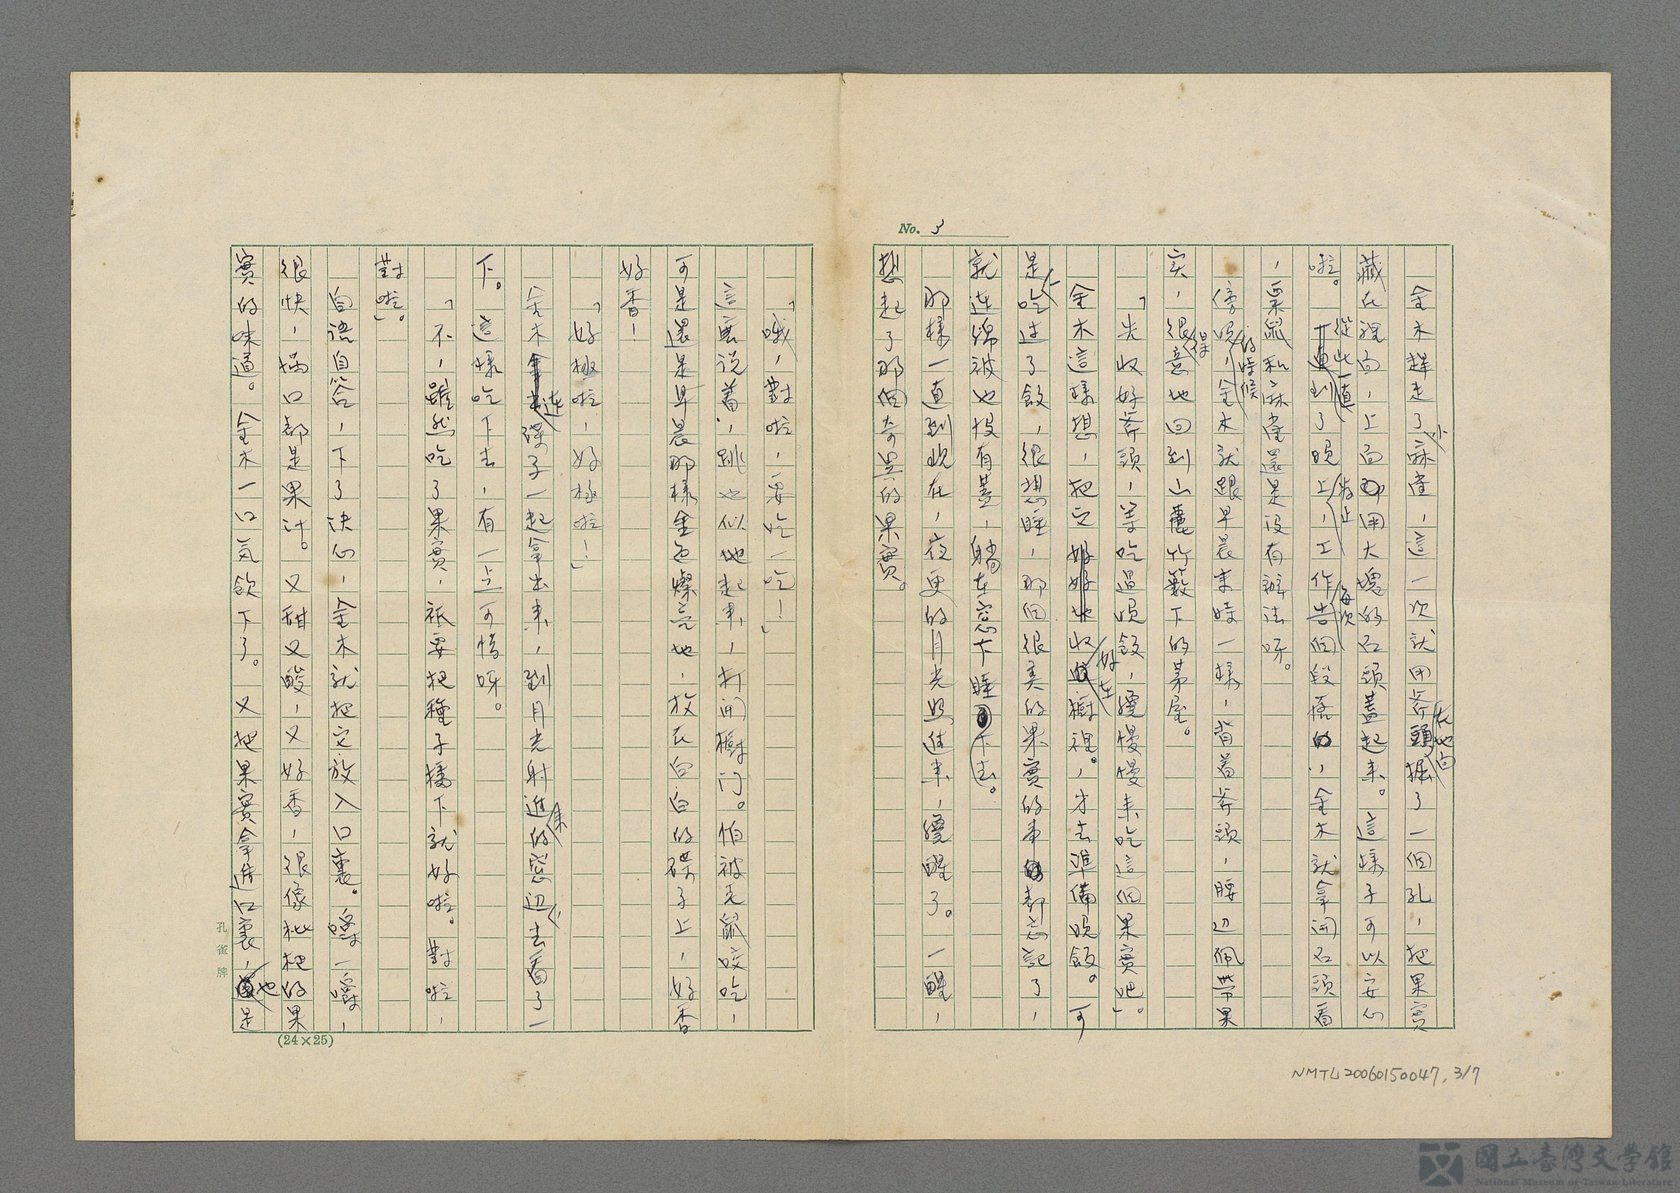 No. 3
金木趕走了小麻雀，這一次就用斧頭在地面掘了一個孔，把果實
藏在裡面，上面用大塊的石頭蓋起來。這樣子可以安心
啦。從此一直到了晚上為止，每次工作告個段落，金木就拿開石頭看
，栗鼠和麻雀還是沒有辦法呀。
傍晚的時候，金木就跟早晨來時一樣，背着斧頭，腰辺佩帶果
实，很得意地回到山裏竹籔下的茅屋。
「先收好斧頭，等吃過晚飯，纔慢慢來吃這個果實吧」。
金木這樣想，把它收好在櫥裡。才去準備晚飯。可
是吃过了飯，很想睡，那個很美的果實的事都忘記了，
就連綿被也沒有蓋，躺在窓下睡下去。
那樣一直到現在，夜更的月光照進來，纔醒了。一醒，
想起了那個奇異的果實。
「哦，對啦，要吃一吃！」
這麼說着，跳也似地起來，打開櫥门。怕被老鼠咬吃，
可是還是早晨那樣金色燦亮地，放在白白的碟子上，好香
好香！
「好極啦，好極啦！」
金木連碟子一起拿出來，到月光射進來的窓辺去看了一
下。這樣吃下去，有一点可惜呀。
「不，雖然吃了果實，祗要把種子播下就好啦。對啦，
對啦」。
自語自答，下了決心，金木就把它放入口裏。嚼一嚼，
很快，滿口都是果汁。又甜又酸，又好香，很像枇杷的果
實的味道。金木一口気飲下了。又把果實拿進口裏，也是
孔雀牌
(24×25)
NMTL20060150047, 3/7
國立臺灣文學館
National Museum of Taiwan Literature